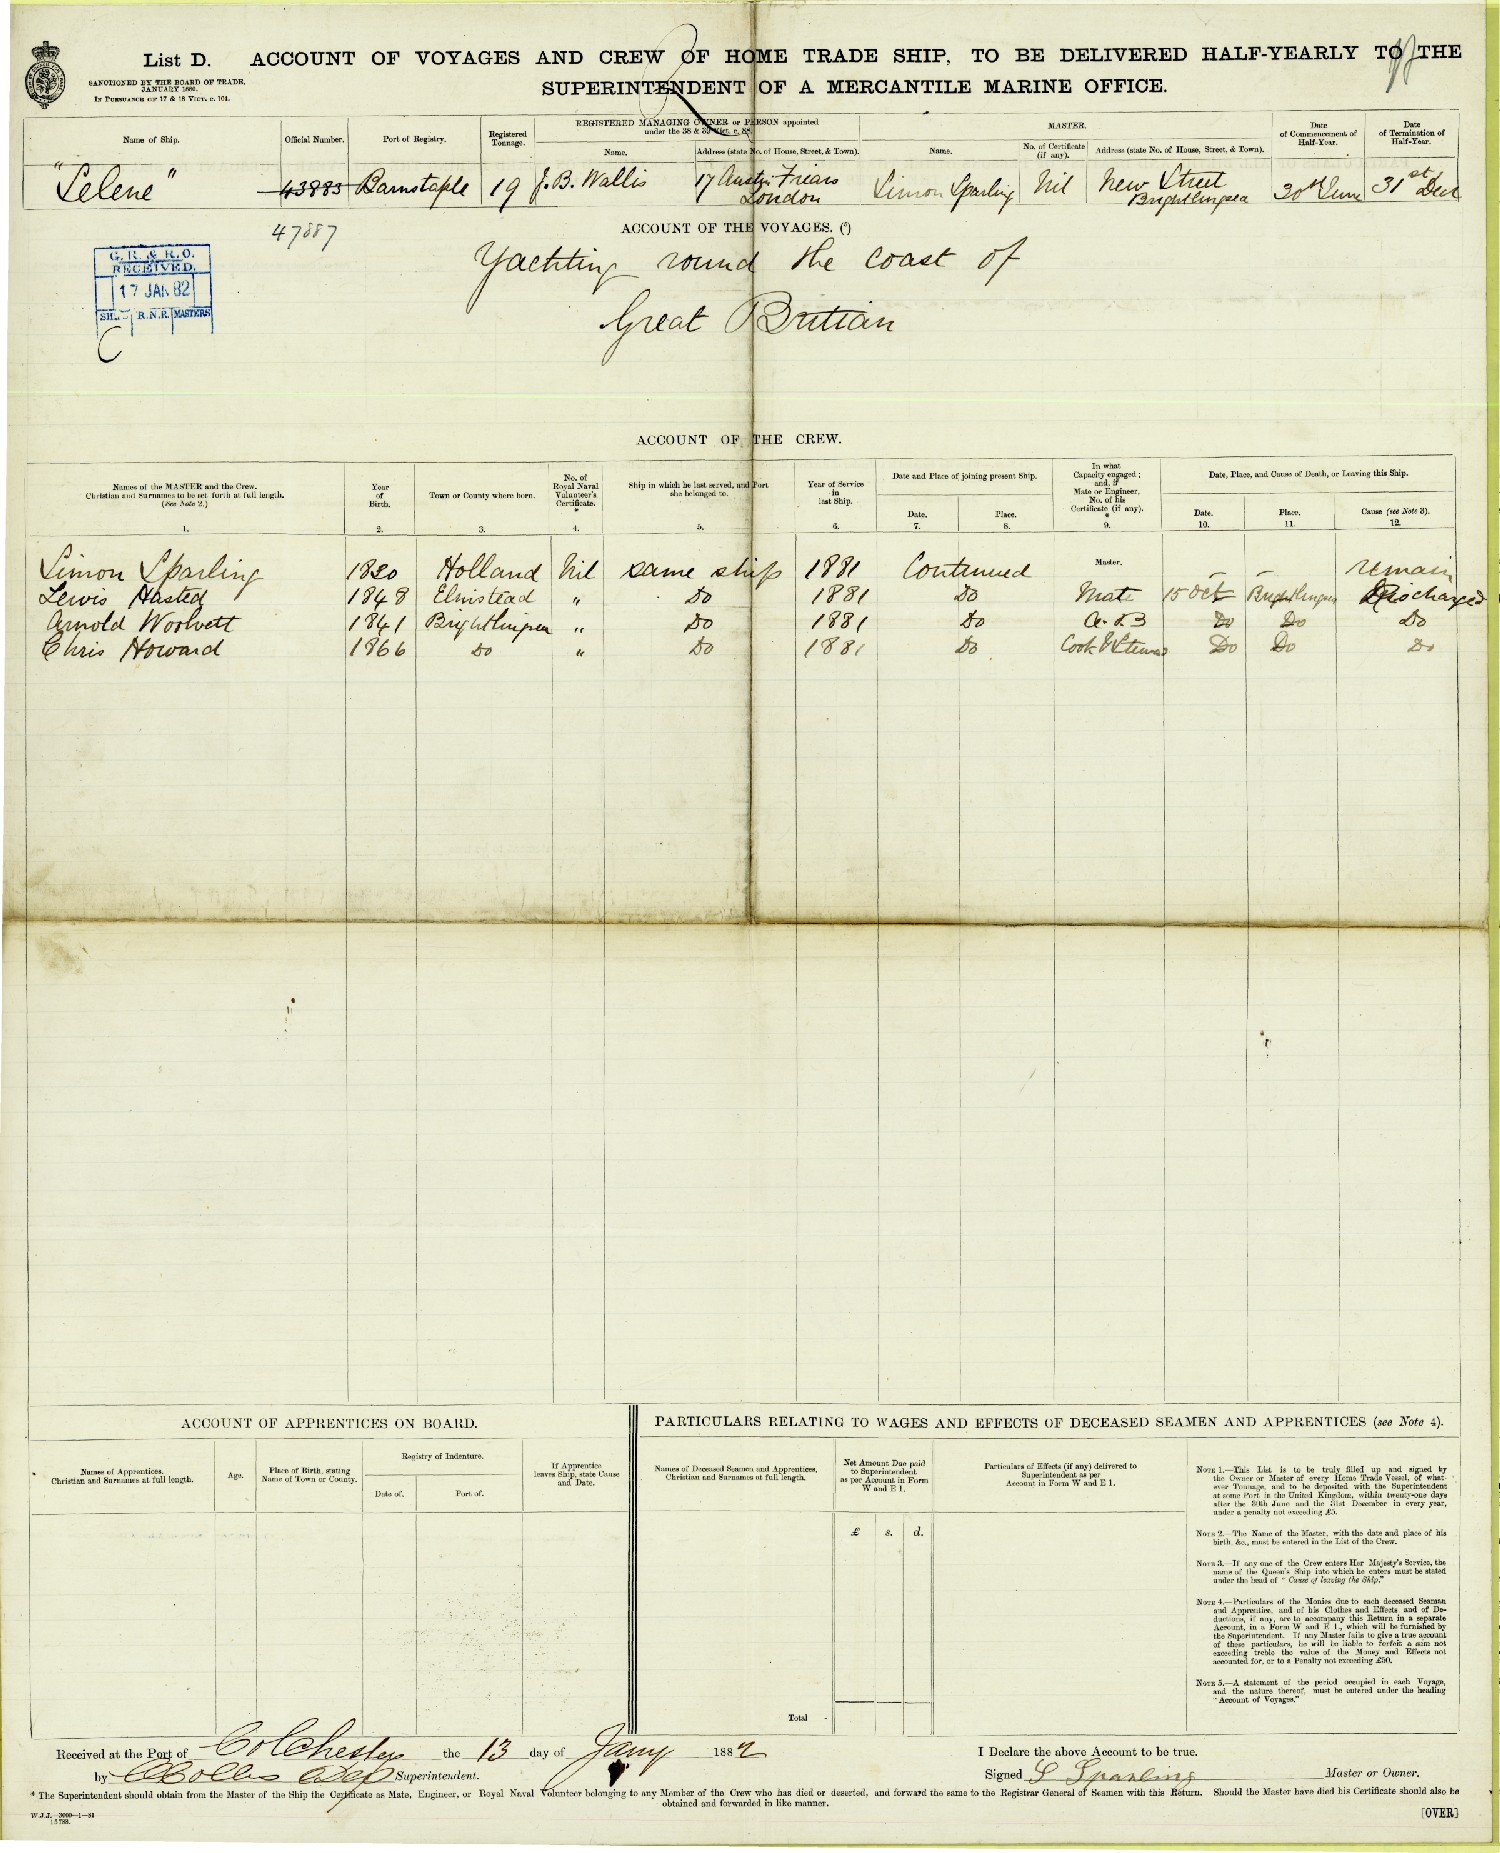 List D. ACCOUNT OF VOYAGES AND CREW OF HOME TRADE SHIP, TO BE DELIVERED HALF-YEARLY TO THE
SUPERINTENDENT OF A MERCANTILE MARINE OFFICE.
SANCTIONED BY THE BOARD OF TRADE,
JANUARY 1880.
IN PURSUANCE OF 17 & 18 VICT. c. 104.
Name of Ship. Official Number. Port of Registry. Registered Tonnage. REGISTERED MANAGING OWNER or PERSON appointed under the 38 & 39 Vict. c. 88. MASTER. Date of Commencement of Half-Year. Date of Termination of Half-Year.
Name. Address (state No. of House, Street, & Town). Name. No. of Certificate (if any). Address (state No. of House, Street, & Town).
"Selene" 43883 Barnstaple 19 J. B. Wallis 17 Austin Friars London Simon Sparling Nil New Street Brightlingsea 30th June 31st Dec
47887
ACCOUNT OF THE VOYAGES. (⁵)
G. R. & R. O.
RECEIVED.
17 JAN 82
R.N.R. MASTERS
C
Yachting round the coast of
Great Britian
ACCOUNT OF THE CREW.
Names of the MASTER and the Crew. Christian and Surnames to be set forth at full length. (See Note 2.) Year of Birth. Town or County where born. No. of Royal Naval Volunteer's Certificate. * Ship in which he last served, and Port she belonged to. Year of Service in last Ship. Date and Place of joining present Ship. In what Capacity engaged; and, if Mate or Engineer, No. of his Certificate (if any). * Date, Place, and Cause of Death, or Leaving this Ship.
Date. Place. Date. Place. Cause (see Note 3).
1. 2. 3. 4. 5. 6. 7. 8. 9. 10. 11. 12.
Simon Sparling 1830 Holland Nil same ship 1881 Continued Master. – – remain
Lewis Hasted 1848 Elmstead " Do 1881 Do Mate 15 Oct Brightlingsea Discharged
Arnold Woolvett 1841 Brightlingsea " Do 1881 Do A.B Do Do Do
Chris Howard 1866 Do " Do 1881 Do Cook & Steward Do Do Do
ACCOUNT OF APPRENTICES ON BOARD.
Names of Apprentices. Christian and Surnames at full length. Age. Place of Birth, stating Name of Town or County. Registry of Indenture. If Apprentice leaves Ship, state Cause and Date.
Date of. Port of.
PARTICULARS RELATING TO WAGES AND EFFECTS OF DECEASED SEAMEN AND APPRENTICES (see Note 4).
Names of Deceased Seamen and Apprentices, Christian and Surnames at full length. Net Amount Due paid to Superintendent as per Account in Form W and E 1. Particulars of Effects (if any) delivered to Superintendent as per Account in Form W and E 1.
£ s. d.
Total
NOTE 1.—This List is to be truly filled up and signed by
the Owner or Master of every Home Trade Vessel, of what-
ever Tonnage, and to be deposited with the Superintendent
at some Port in the United Kingdom, within twenty-one days
after the 30th June and the 31st December in every year,
under a penalty not exceeding £5.
NOTE 2.—The Name of the Master, with the date and place of his
birth, &c., must be entered in the List of the Crew.
NOTE 3.—If any one of the Crew enters Her Majesty's Service, the
name of the Queen's Ship into which he enters must be stated
under the head of "Cause of leaving the Ship."
NOTE 4.—Particulars of the Monies due to each deceased Seaman
and Apprentice, and of his Clothes and Effects and of De-
ductions, if any, are to accompany this Return in a separate
Account, in a Form W and E 1., which will be furnished by
the Superintendent. If any Master fails to give a true account
of these particulars, he will be liable to forfeit a sum not
exceeding treble the value of the Money and Effects not
accounted for, or to a Penalty not exceeding £50.
NOTE 5.—A statement of the period occupied in each Voyage,
and the nature thereof, must be entered under the heading
"Account of Voyages."
Received at the Port of Colchester the 13 day of Jany 1882
by Superintendent.
I Declare the above Account to be true.
Signed S Sparling Master or Owner.
* The Superintendent should obtain from the Master of the Ship the Certificate as Mate, Engineer, or Royal Naval Volunteer belonging to any Member of the Crew who has died or deserted, and forward the same to the Registrar General of Seamen with this Return. Should the Master have died his Certificate should also be
obtained and forwarded in like manner.
[OVER]